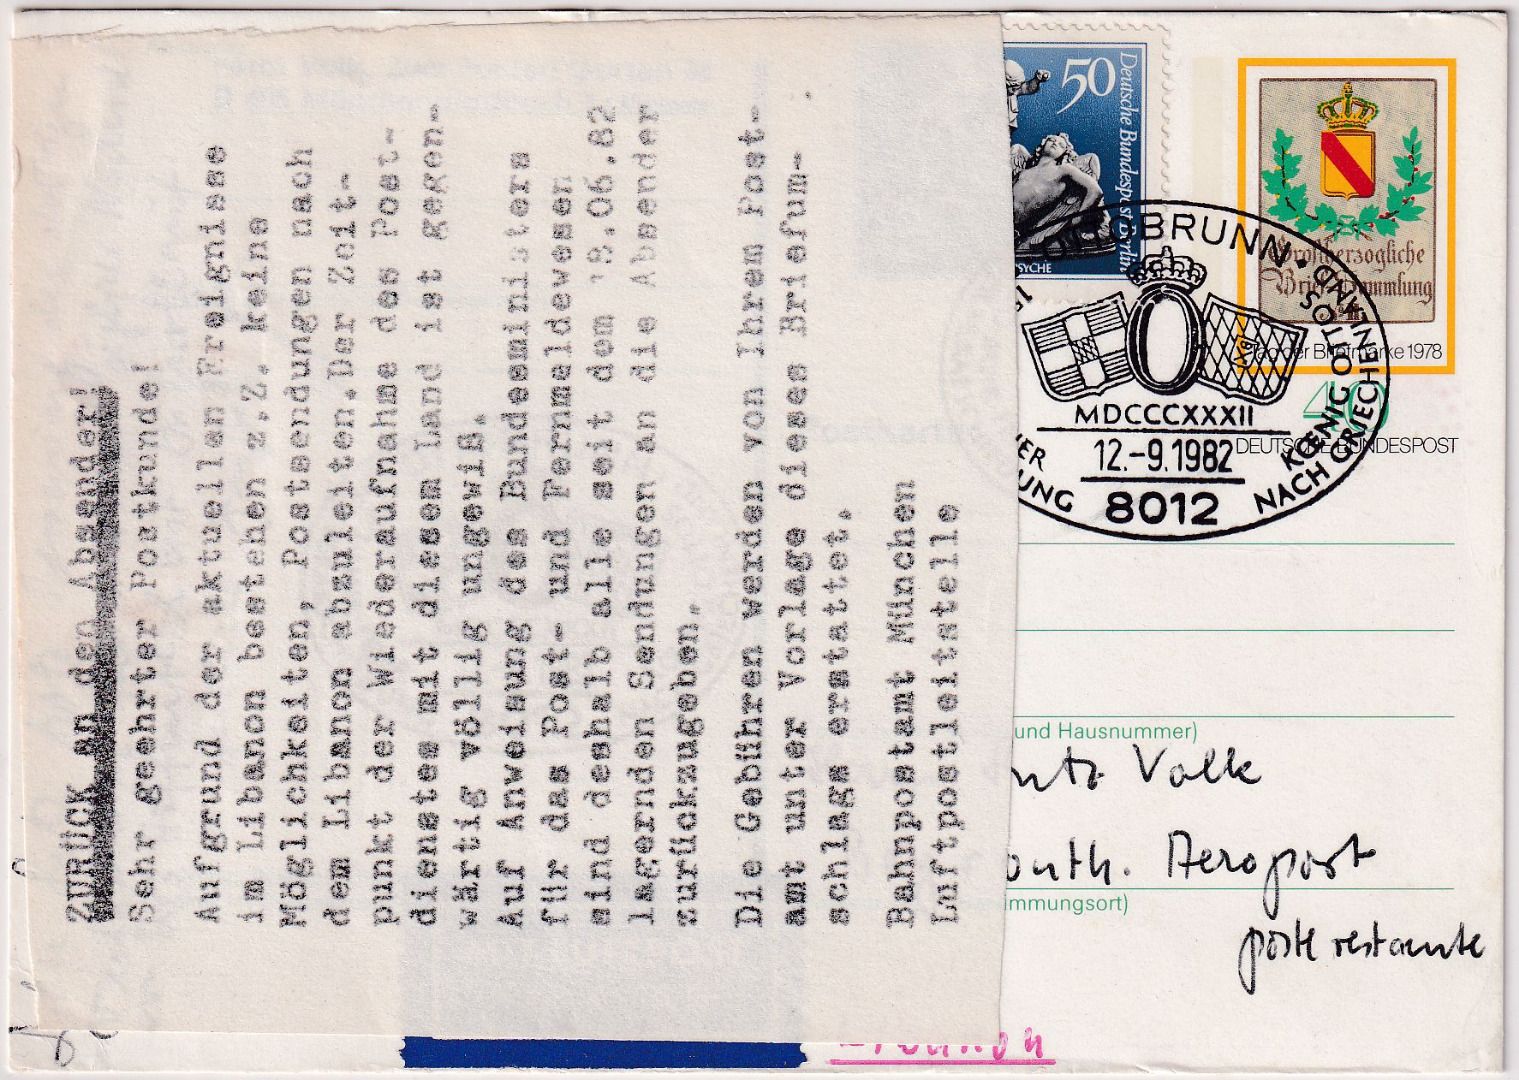 ZURÜCK an den Absender!
Sehr geehrter Postkunde!
Aufgrund der aktuellen Ereignisse
im Libanon bestehen z.Z. keine
Möglichkeiten, Postsendungen nach
dem Libanon abzuleiten.Der Zeit-
punkt der Wiederaufnahme des Post-
dienstes mit diesem Land ist gegen-
wärtig völlig ungewiß.
Auf Anweisung des Bundesministers
für das Post- und Fernmeldewesen
sind deshalb alle seit dem 19.06.82
lagernden Sendungen an die Absender
zurückzugeben.
Die Gebühren werden von Ihrem Post-
amt unter Vorlage dieses Briefum-
schlags erstattet.
Bahnpostamt München
Luftpostleitstelle
50
Deutsche Bundespost Berlin
SYCHE
Großherzogliche
Briefsammlung
Tag der Briefmarke 1978
40
DEUTSCHE BUNDESPOST
OBRUNN
KOENIG OTTOS
NACH GRIECHENLAND
MDCCCXXXII
12.-9.1982
8012
ER
UNG
und Hausnummer)
Volk
Aeropost
mmungsort)
poste restante